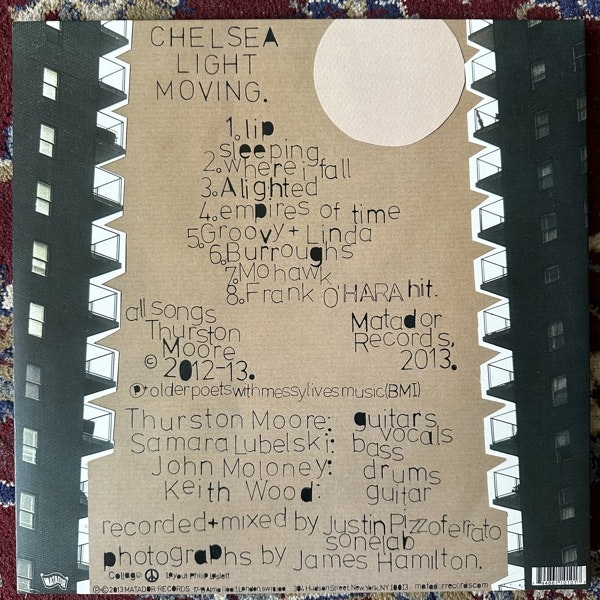 CHELSEA
LIGHT
MOVING.
1. lip
sleeping
2. where i fall
3. Alighted
4. empires of time
5. Groovy + Linda
6. Burroughs
7. Mohawk
8. Frank O'HARA hit.
all songs
Thurston
Moore
© 2012-13.
Matador
Records,
2013.
℗+olderpoetswithmessylivesmusic(BMI)
Thurston Moore: guitars
vocals
Samara Lubelski: bass
John Moloney: drums
Keith Wood: guitar
recorded+mixed by Justin Pizzoferrato
sonelab
photographs by James Hamilton.
Collage
MATADOR
℗+© 2013 MATADOR RECORDS
304 Hudson Street, New York, NY 10013
matadorrecords.com